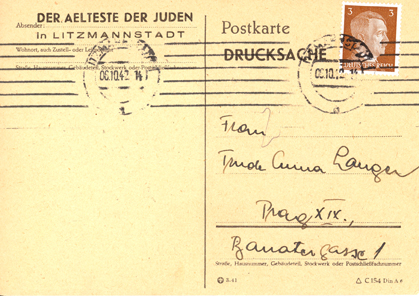 DER AELTESTE DER JUDEN
Absender:
In LITZMANNSTADT
Wohnort, auch Zustell- oder
Straße, Hausnummer, Gebäudeteil, Stockwerk oder
08.10.42 14
Postkarte
DRUCKSACHE
3 3
DEUTSCHES REICH
08.10.42 14
Frau
Trude Anna Langer
Prag XIX.,
Banatergasse 1
Straße, Hausnummer, Gebäudeteil, Stockwerk oder Postschließfachnummer
C 154 Din A 6